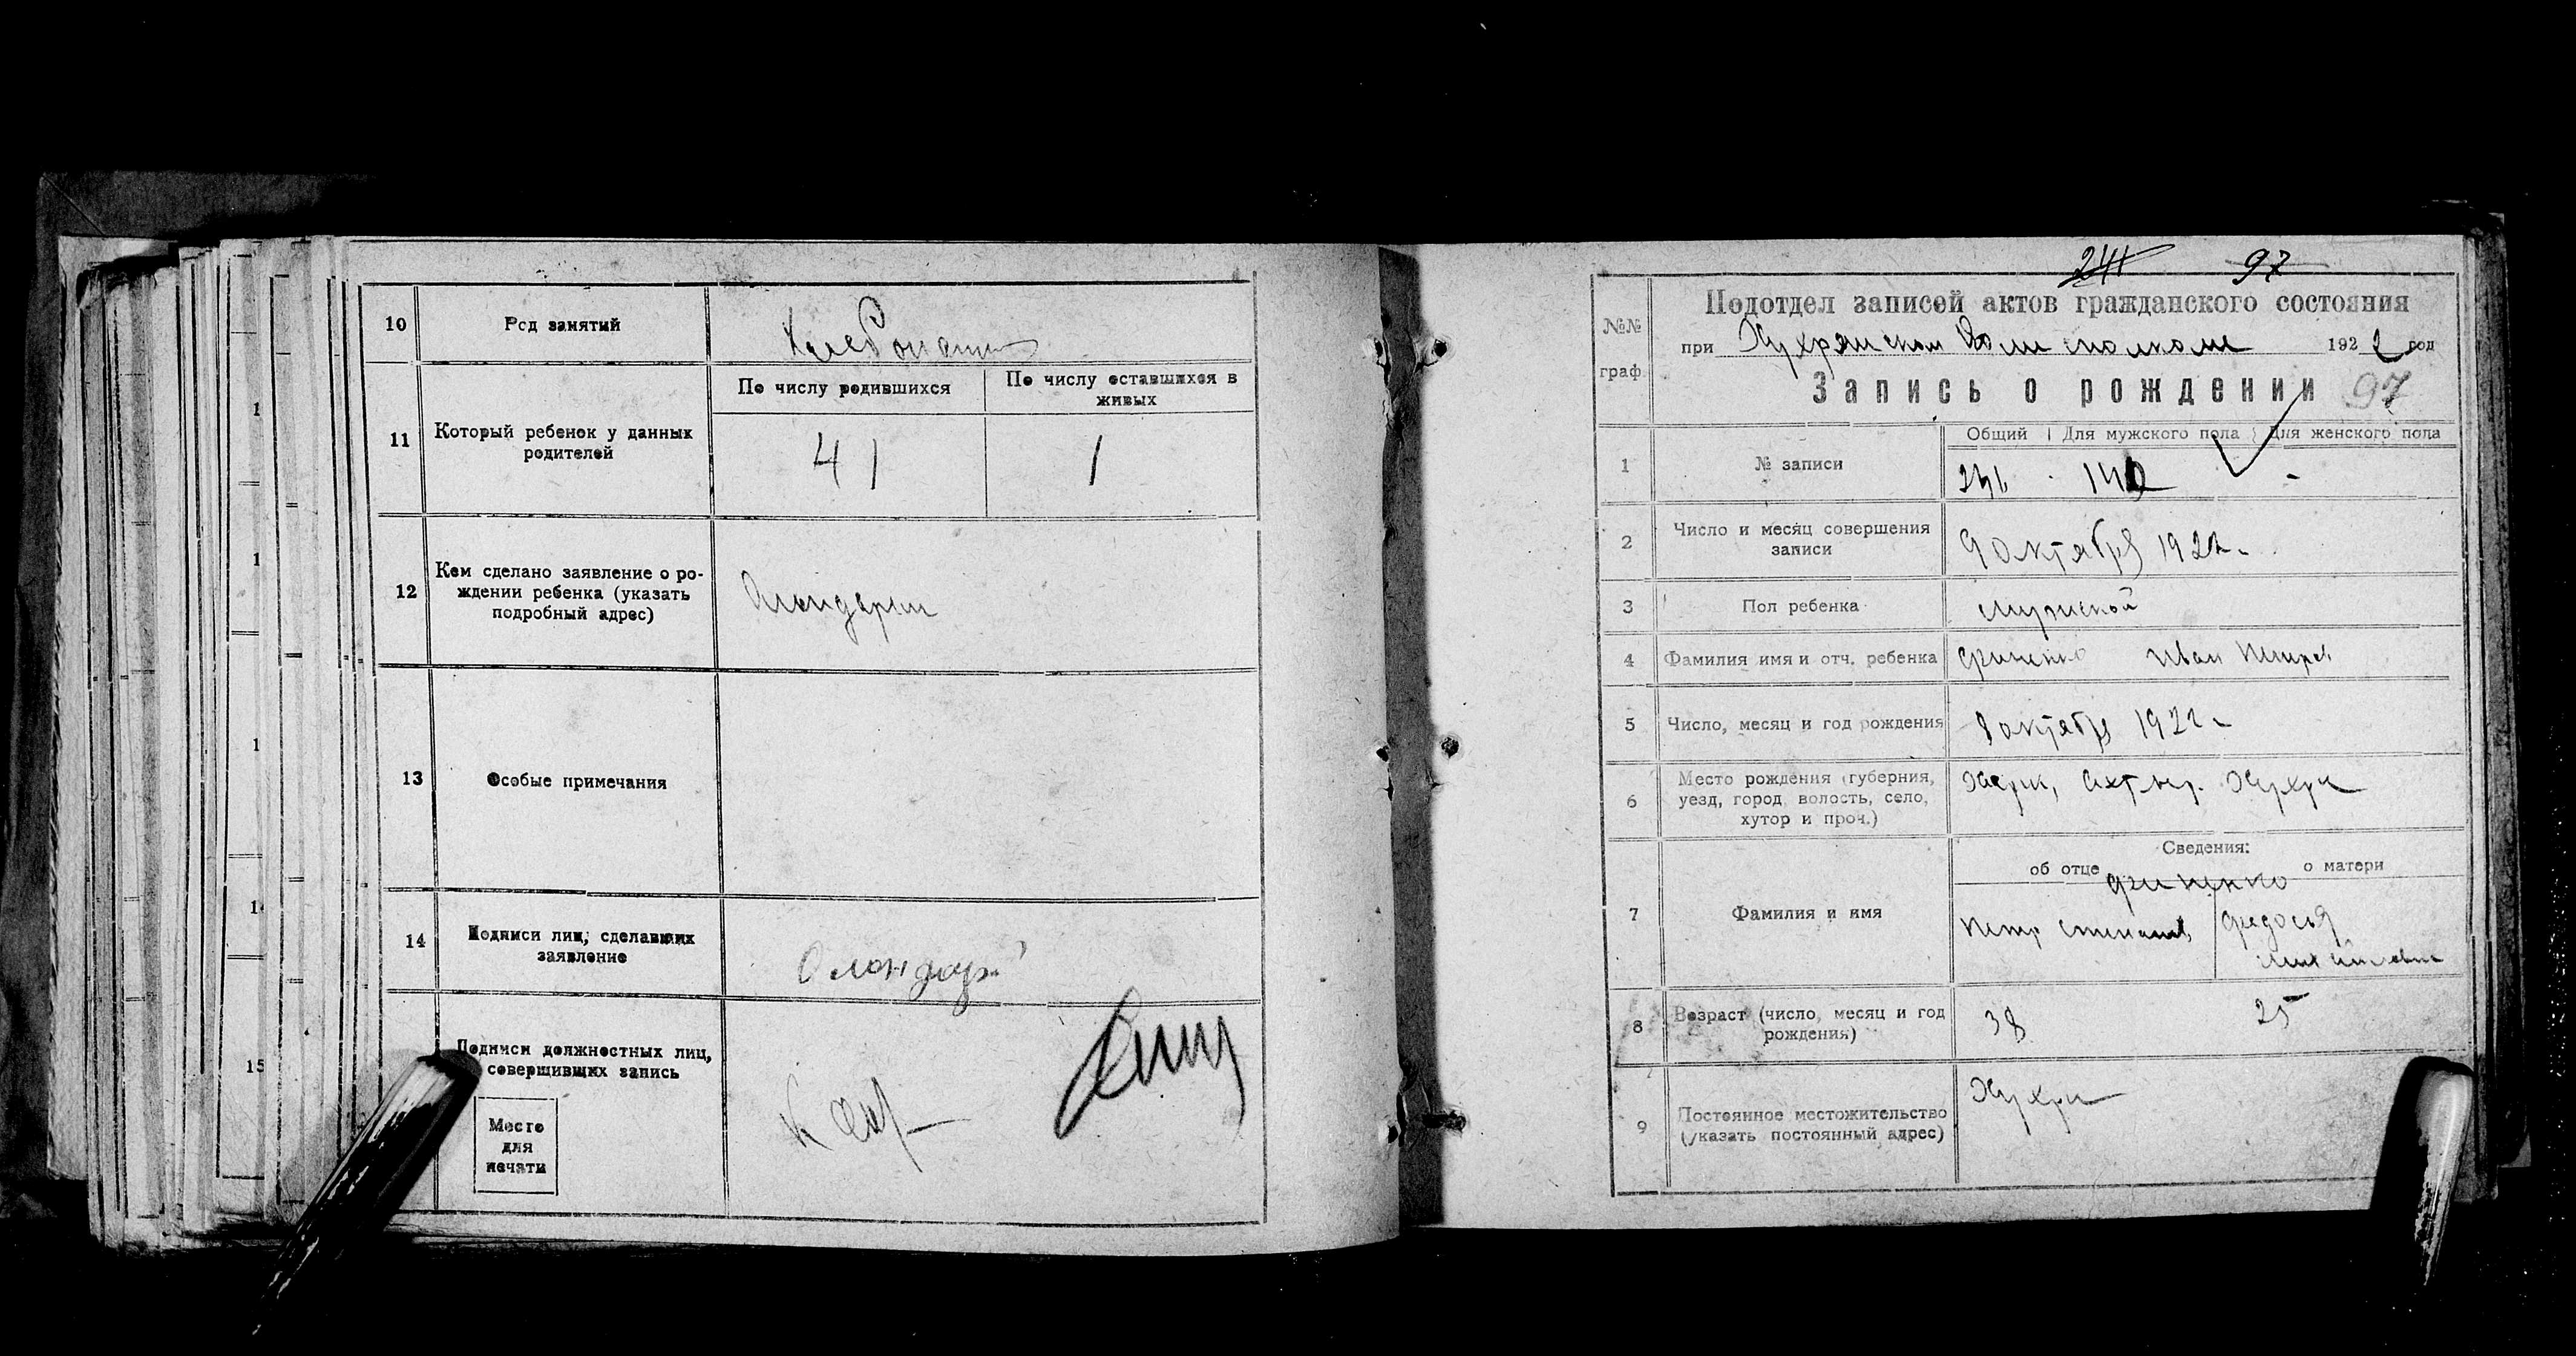 10
Род занятий
Хлебопашец
11
Который ребенок у данных
родителей
По числу родившихся
По числу оставшихся в
живых
4 1
1
12
Кем сделано заявление о ро-
ждении ребенка (указать
подробный адрес)
13
Особые примечания
14
Подписи лиц, сделавших
заявление
15
Подписи должностных лиц,
совершивших запись
Место
для
печати
241 97
№№
граф.
Подотдел записей актов гражданского состояния
при Хухрянском Волисполкоме 1922 год
Запись о рождении 97
1
№ записи
Общий Для мужского пола Для женского пола
241 140 -
2
Число и месяц совершения
записи
9 октября 1922
3
Пол ребенка
мужской
4
Фамилия имя и отч. ребенка
Гриненко Иван Петров
5
Число, месяц и год рождения
8 октября 1922
6
Место рождения (губерния,
уезд, город, волость, село,
хутор и проч.)
Харк, Ахтыр. Хухри
7
Фамилия и имя
Сведения:
об отце о матери
Гриненко
Петр Степанов
Федосья
Михайловна
8
Возраст (число, месяц и год
рождения)
38
25
9
Постоянное местожительство
(указать постоянный адрес)
Хухри